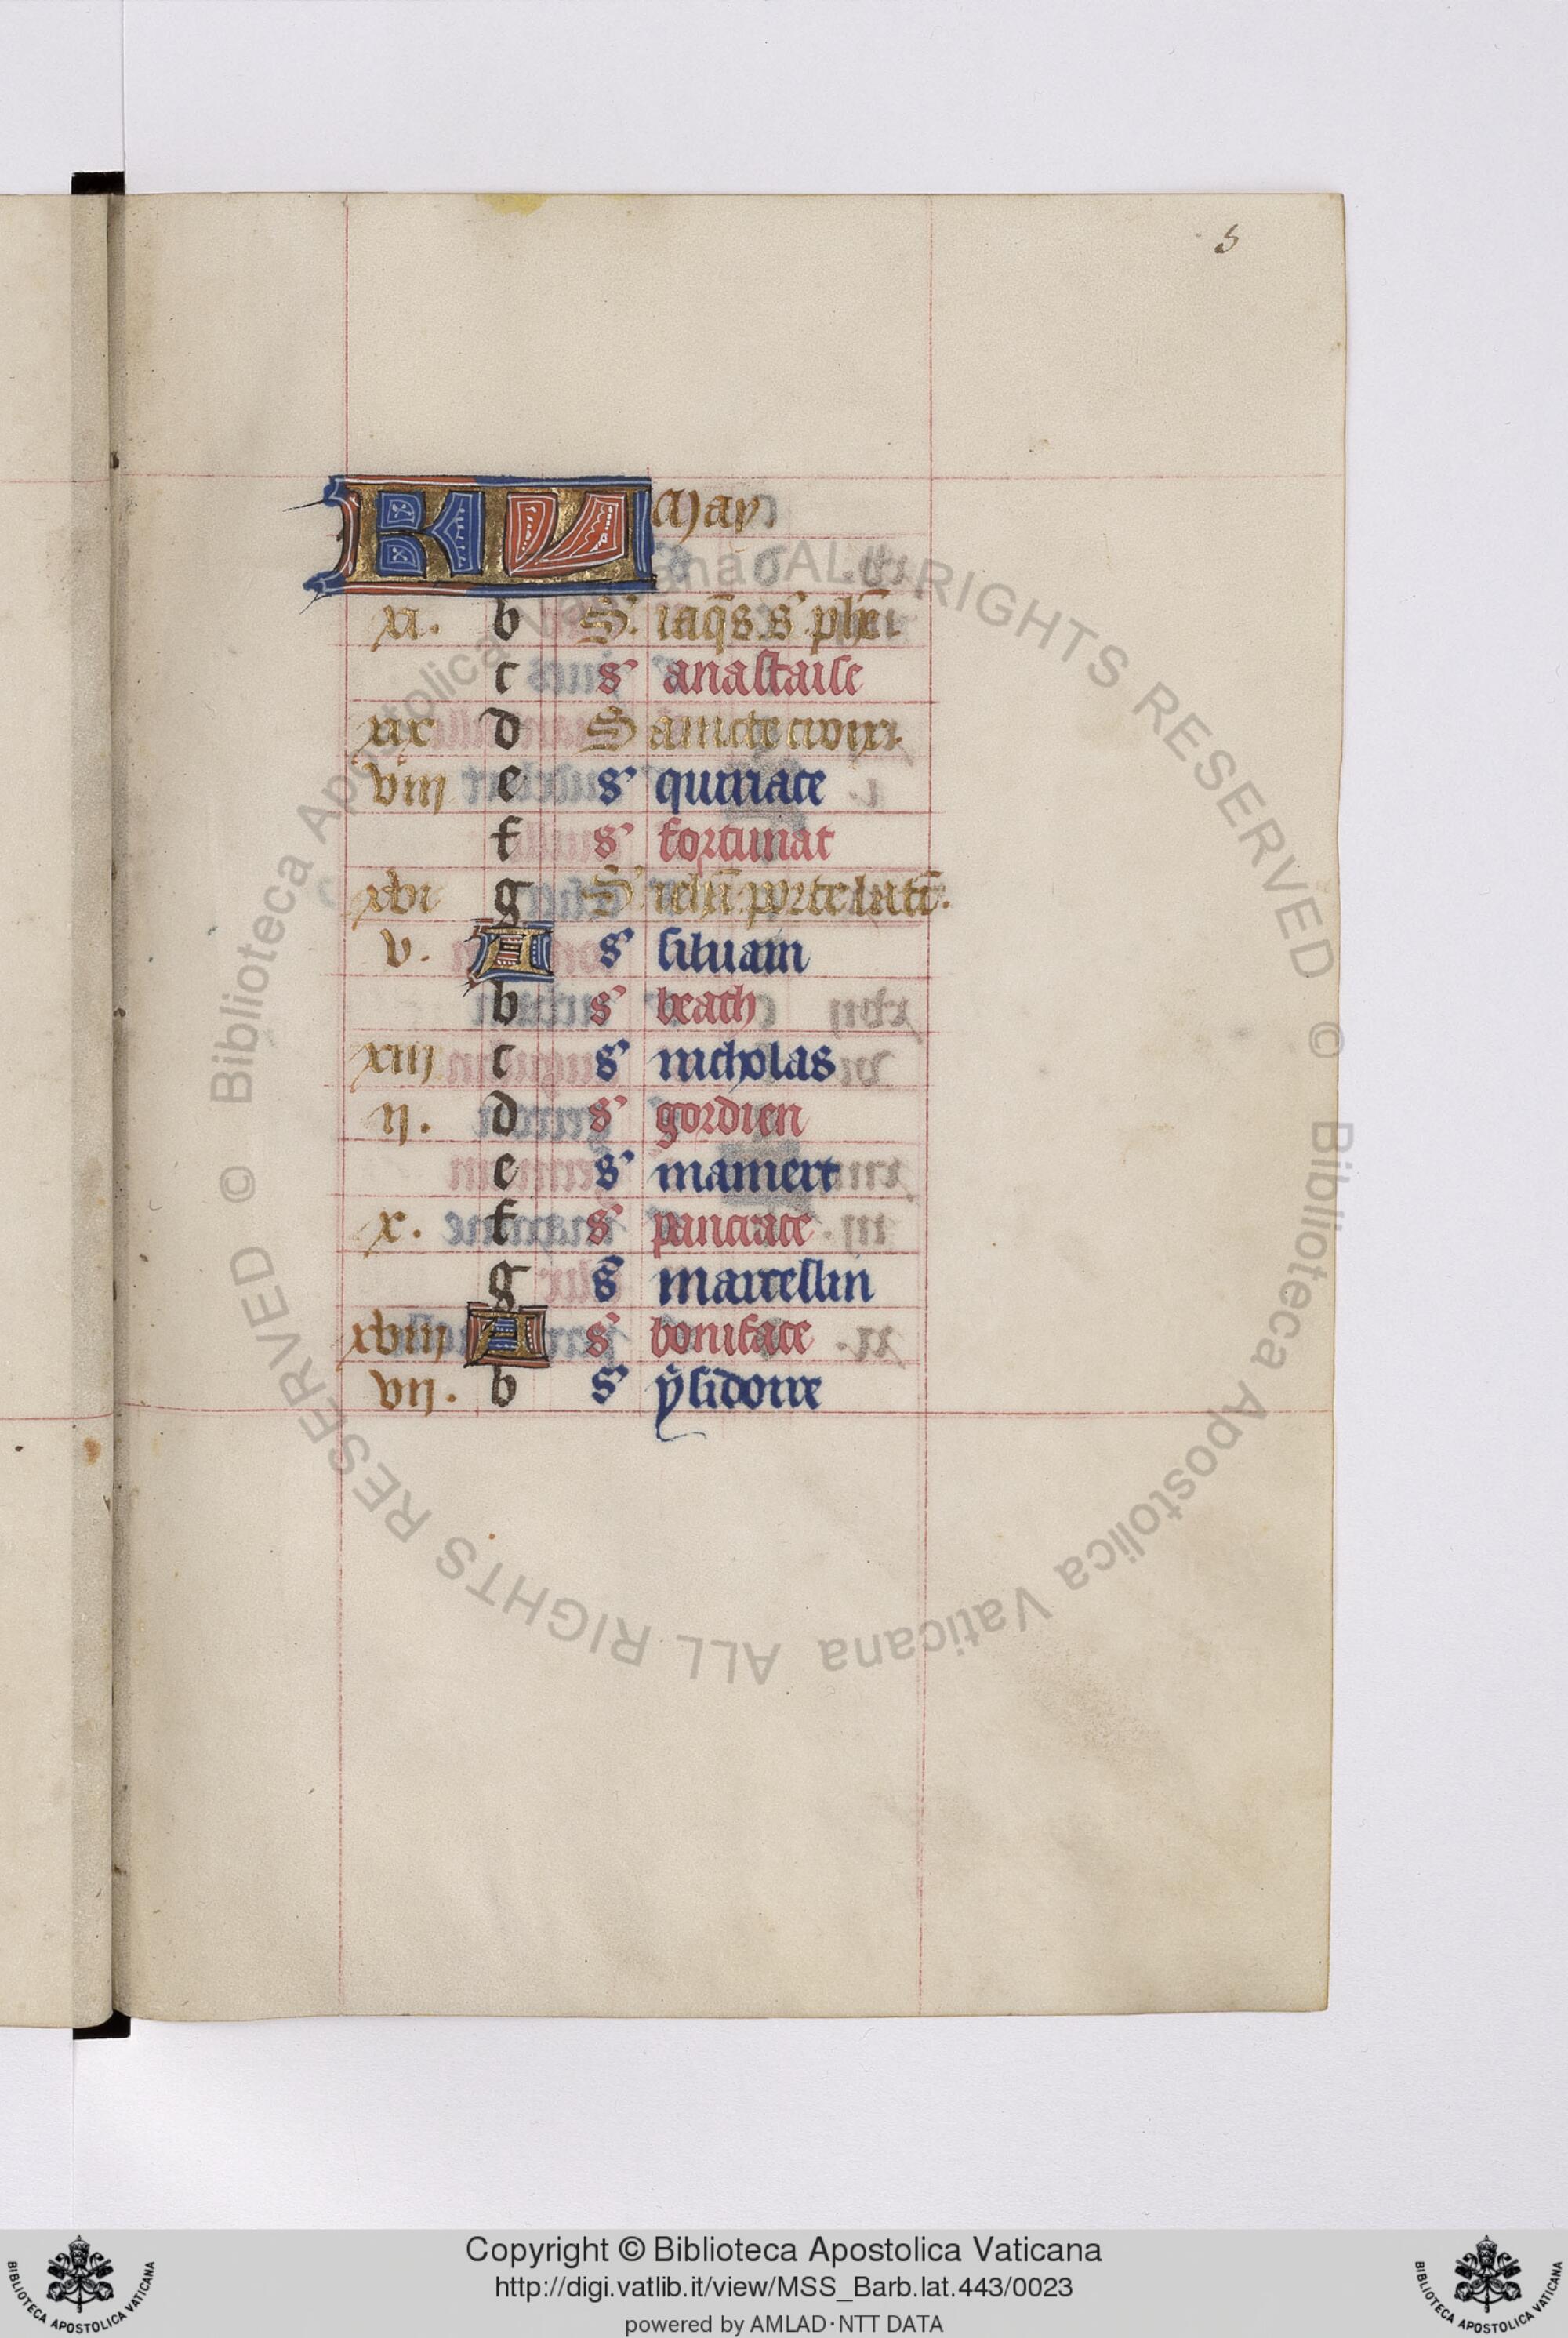 5
KL May
xi. b S. iaq̄s s' ph̄e.
c s' anastaise
xix d Saincte croix.
viii e s' quiriace
f s' fortunat
xvi g S' ieh̄n porte latī.
v. A s' siluain
b s' beath
xiii c s' nicholas
ii. d s' gordien
e s' mamert
x. f s' pancrace
g s' marcellin
xviii A s' boniface
vii. b s' ẏsidoire
© Biblioteca Apostolica Vaticana ALL RIGHTS RESERVED © Biblioteca Apostolica Vaticana ALL RIGHTS RESERVED
Copyright © Biblioteca Apostolica Vaticana
http://digi.vatlib.it/view/MSS_Barb.lat.443/0023
powered by AMLAD·NTT DATA
BIBLIOTECA APOSTOLICA VATICANA
BIBLIOTECA APOSTOLICA VATICANA